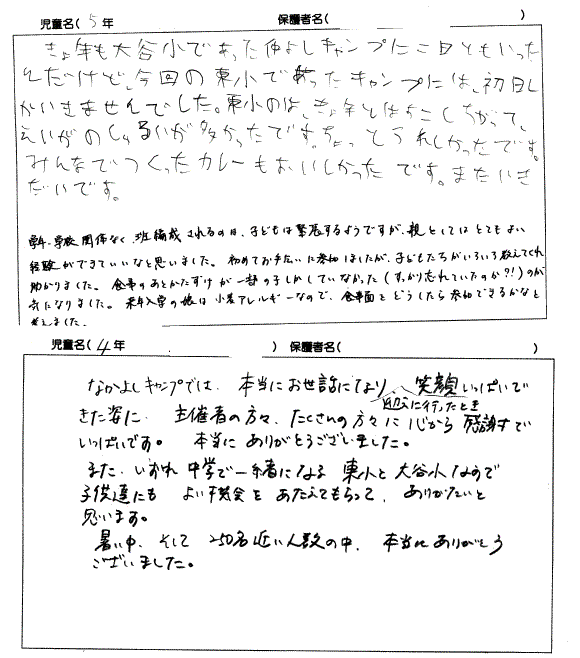 児童名( 5年 保護者名( )
きょ年も大谷小であった仲よしキャンプに二日ともいった
んだけど、今回の東小であったキャンプには、初日し
かいきませんでした。東小のは、きょ年とはすこしちがって、
えいがのしゅるいが多かったです。ちょっとうれしかったです。
みんなでつくったカレーもおいしかったです。またいき
たいです。
学年、学校関係なく、班編成されるのは、子どもは緊張するようですが、親としてはとてもよい
経験ができていいなと思いました。初めてお手伝いに参加しましたが、子どもたちがいろいろ教えてくれ
助かりました。食事のあとかたずけが一部の子しかしていなかった(すっかり忘れていたのか?!)のが
気になりました。来年入学の娘は小麦アレルギーなので、食事面をどうしたら参加できるかなと
考えました。
児童名( 4年 ) 保護者名( )
なかよしキャンプでは、本当にお世話になり、笑顔いっぱいで
迎えに行ったとき
きた姿に、主催者の方々、たくさんの方々に心から感謝で
いっぱいです。本当にありがとうございました。
また、いずれ中学で一緒になる東小と大谷小なので
子供達にもよい機会をあたえてもらって、ありがたいと
思います。
暑い中、そして250名近い人数の中、本当にありがとう
ございました。